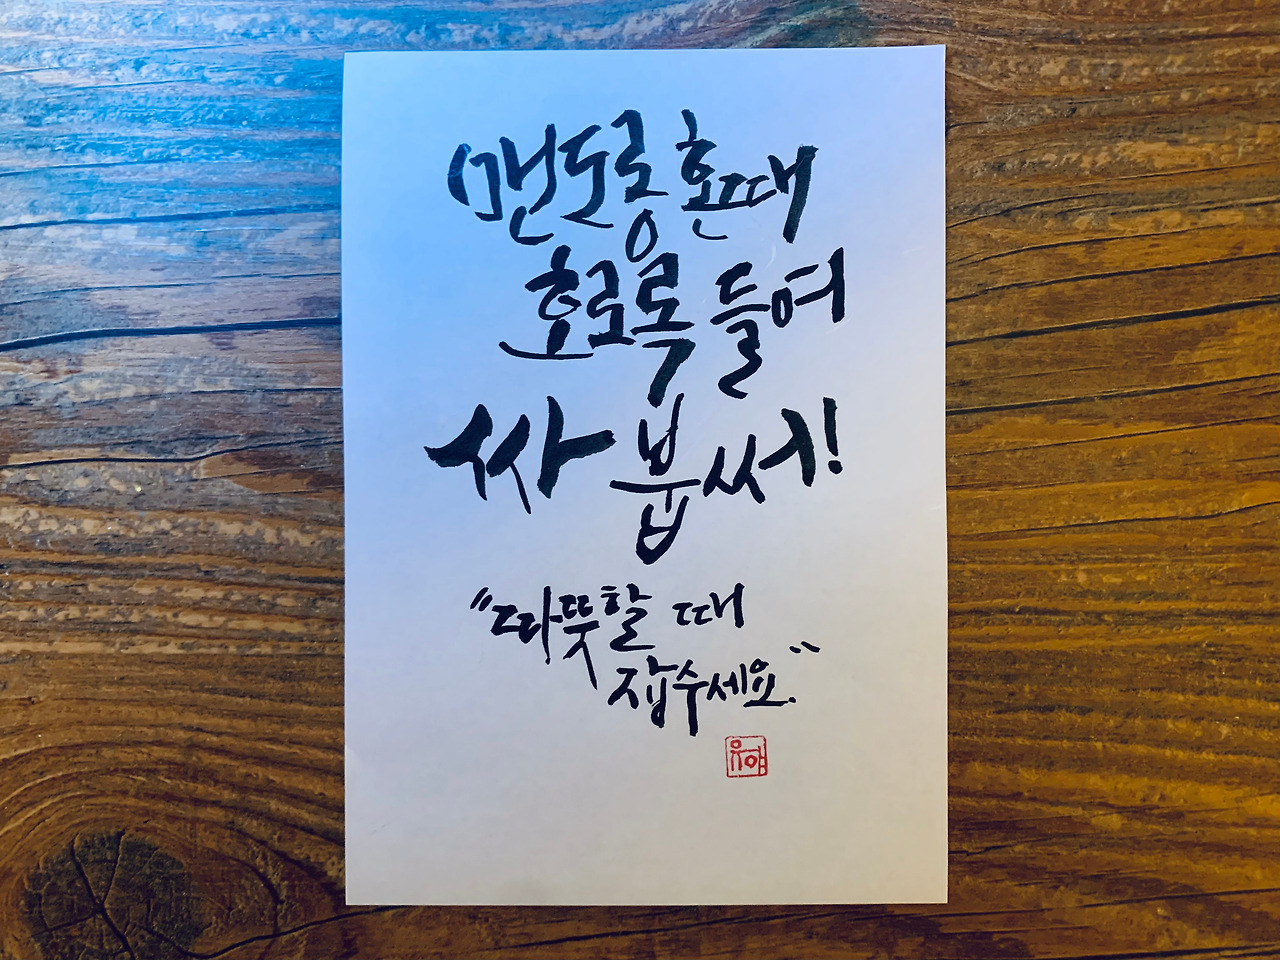 맨도롱 혼때
호로록 들여
싸붑써!
"따뜻할 때
잡수세요."